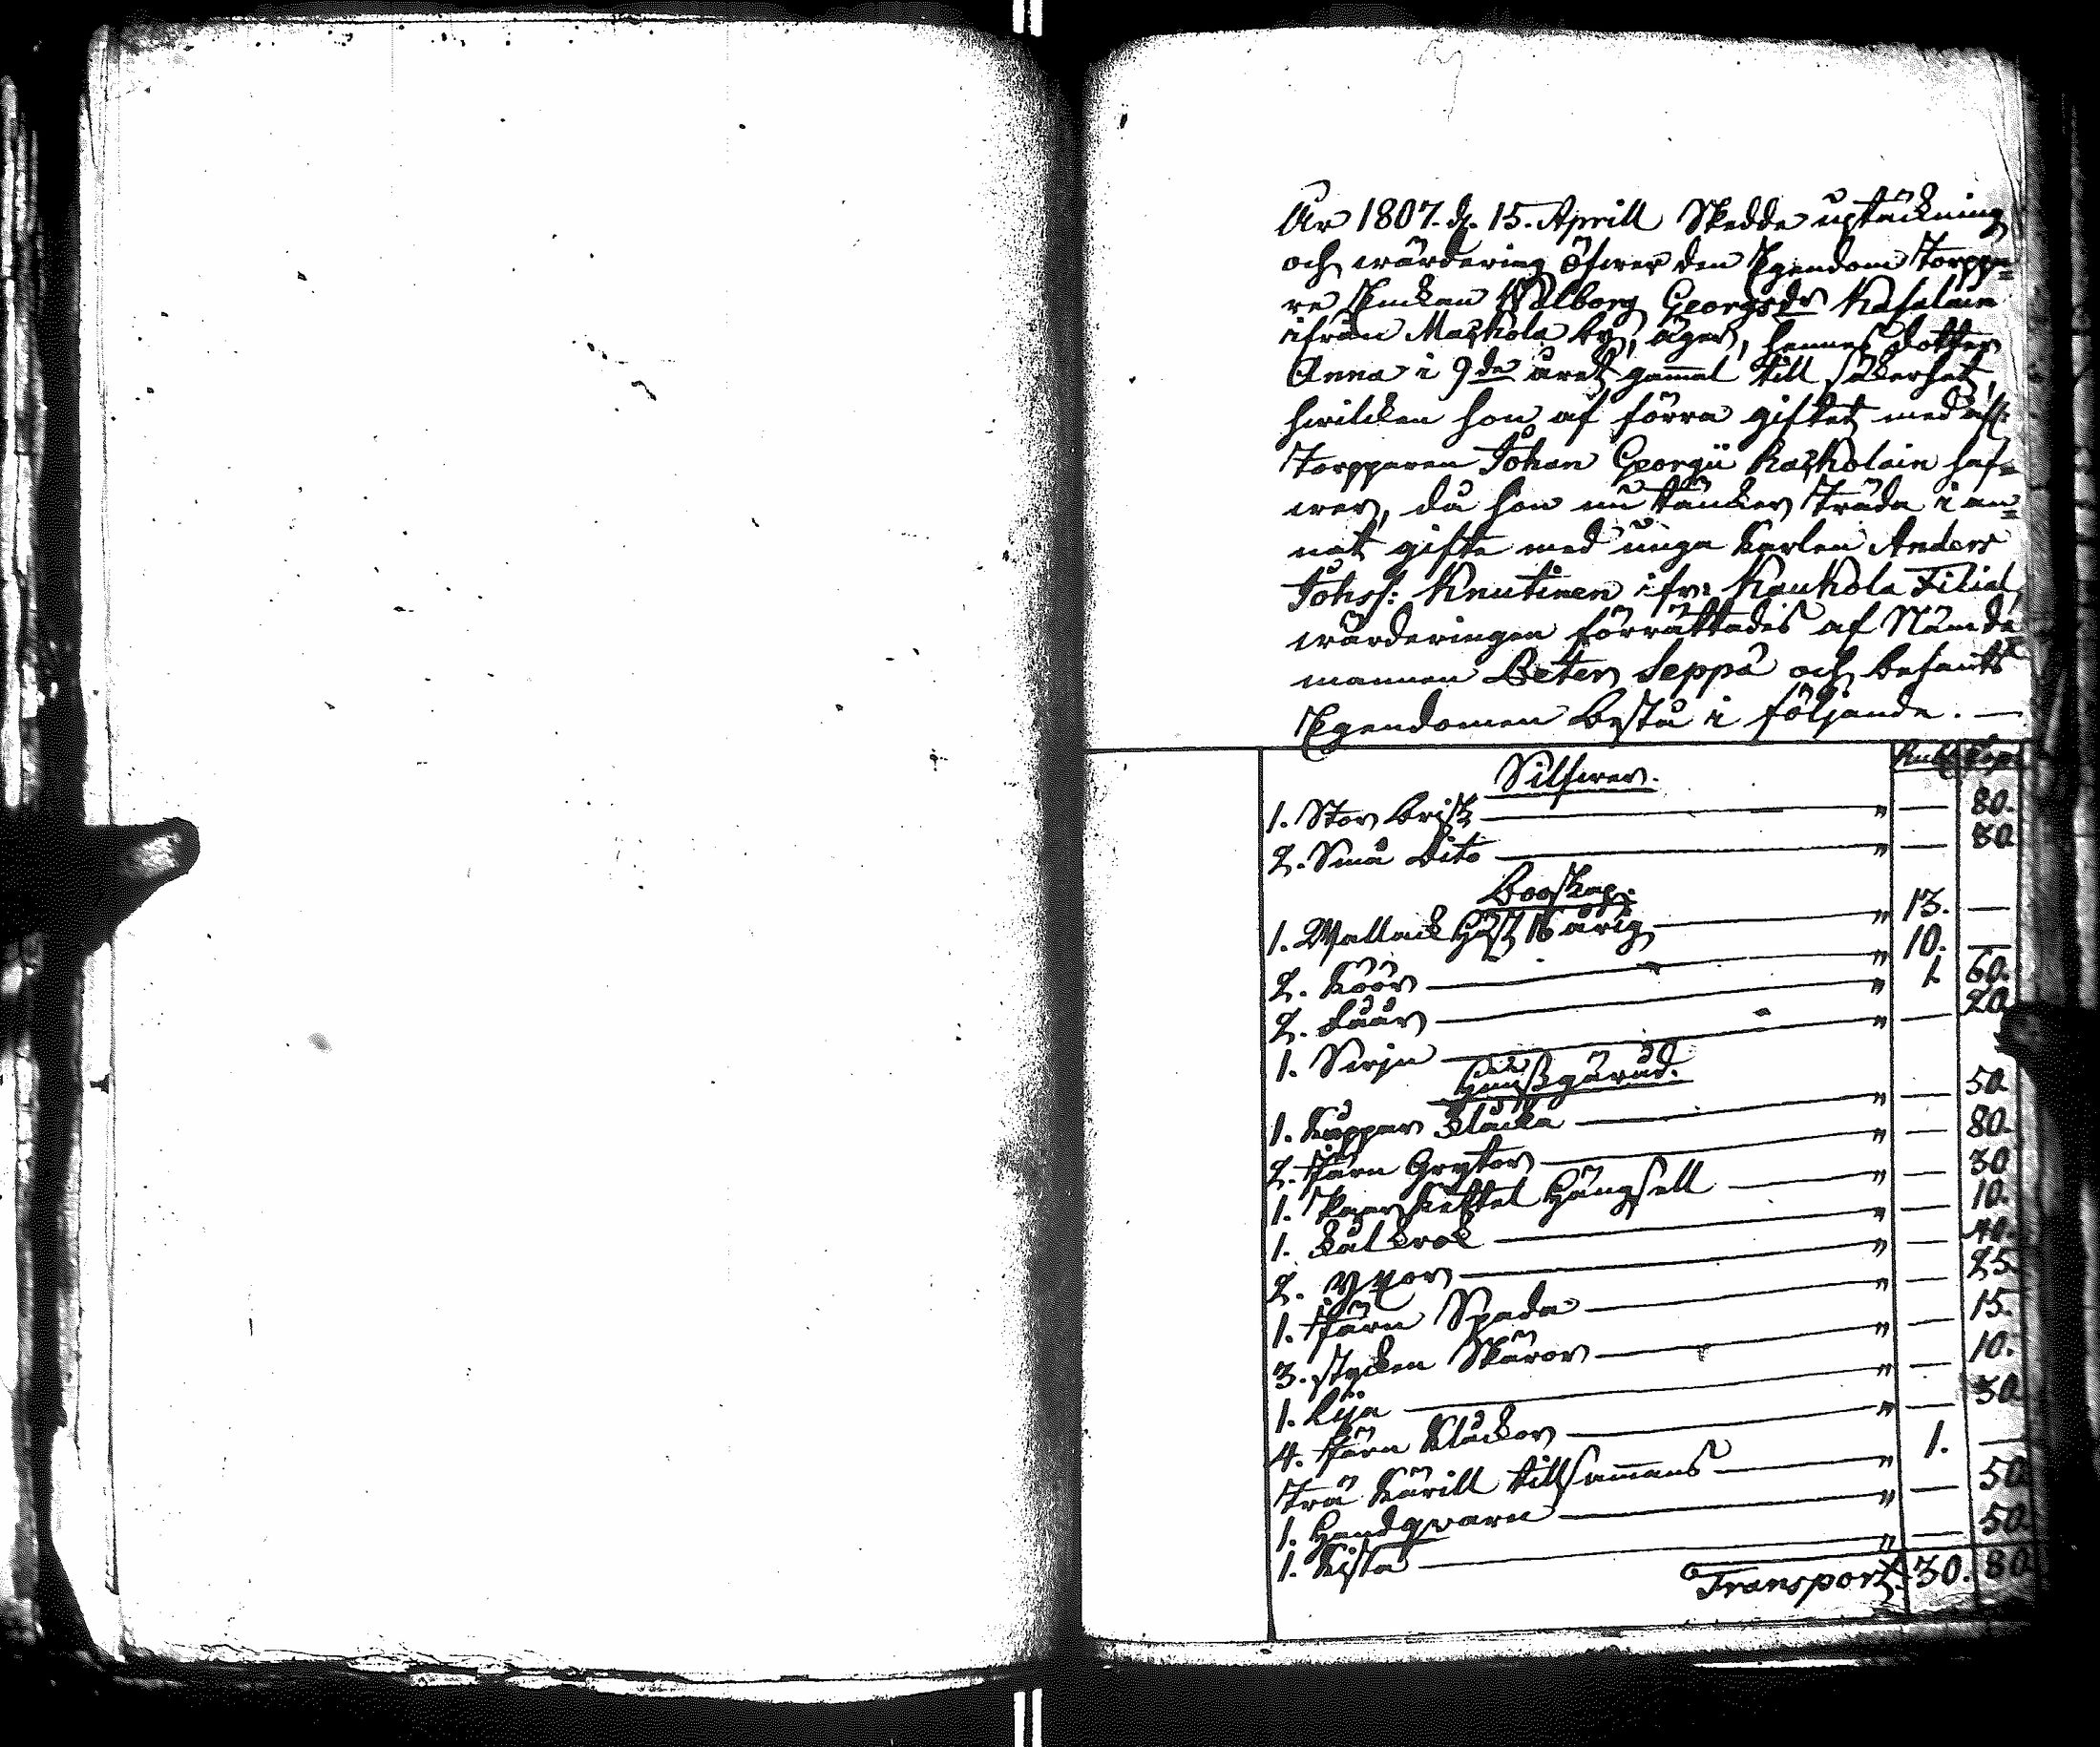 År 1807. d. 15. Aprill Skedde uptäckning
och wärdering öfwer den Egendom Torppa=
re Enckan Walborg Georgsdr Kaſalain
ifrån Maſkola by, äger, hennes dotter
Anna i 9de året gammal till säkerhet,
hwilcken hon af förra giftet med afl:
Torpparen Johan Georgii Kaſkolain haf=
wer, då hon nu täncker träda i an=
nat gifte med unga karlen Anders
Johsſ: Knutinen ifr: Kaukola Filial,
wärderingen förrättades af Nämde
mannen Peter Seppä och befants
Egendomen bestå i följande. —
Rub: Cop:
Silfwer.
1. Stor brisk — " — 80.
2. Små dito — " — 30
Booskap.
1. Wallack Häst 16 årig — " 13. —
2. Koor — " 10. —
2. Fåår — " 1 60.
1. Swijn — " — 20
Huusgåråd.
1. Koppar Klåcka — " — 50
2. Järn Grytor — " — 80.
1. Hängsell — " — 30
1. Kålkrok — " — 10.
2. Yxor — " — 40.
1. Järn Spada — " — 25.
3. stycken Skäror — " — 15.
1. Lija — " — 10.
4. Järn Klåckor — " — 30
Trä Kärill tillsammans — " 1. —
1. Handqvarn — " — 50
1. Kista — " — 50
Transport. 30. 80